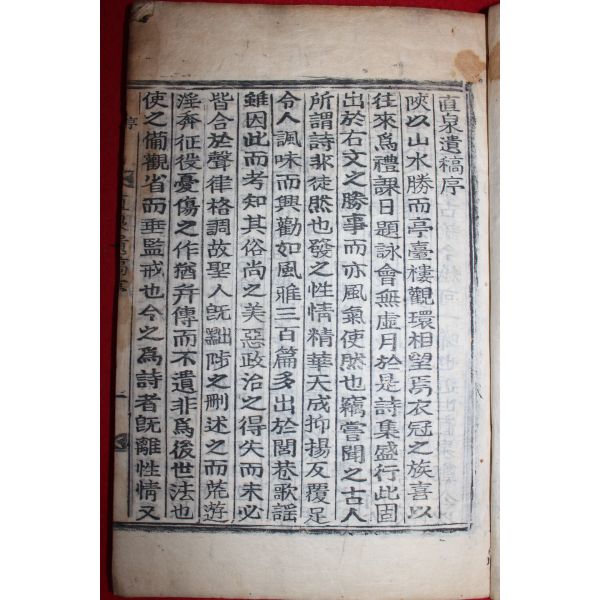 直泉遺稿序
陜以山水勝而亭臺樓觀環相望焉衣冠之族喜以
往來爲禮課日題詠會無虛月於是詩集盛行此固
出於右文之勝事而亦風氣使然也竊嘗聞之古人
所謂詩非徒然也發之性情精華天成抑揚反覆足
令人諷味而興勸如風雅三百篇多出於閭巷歌謠
雖因此而考知其俗尚之美惡政治之得失而未必
皆合於聲律格調故聖人旣黜陟之刪述之而荒遊
淫奔征役憂傷之作猶幷傳而不遺非爲後世法也
使之備觀省而垂監戒也今之爲詩者旣離性情又
序